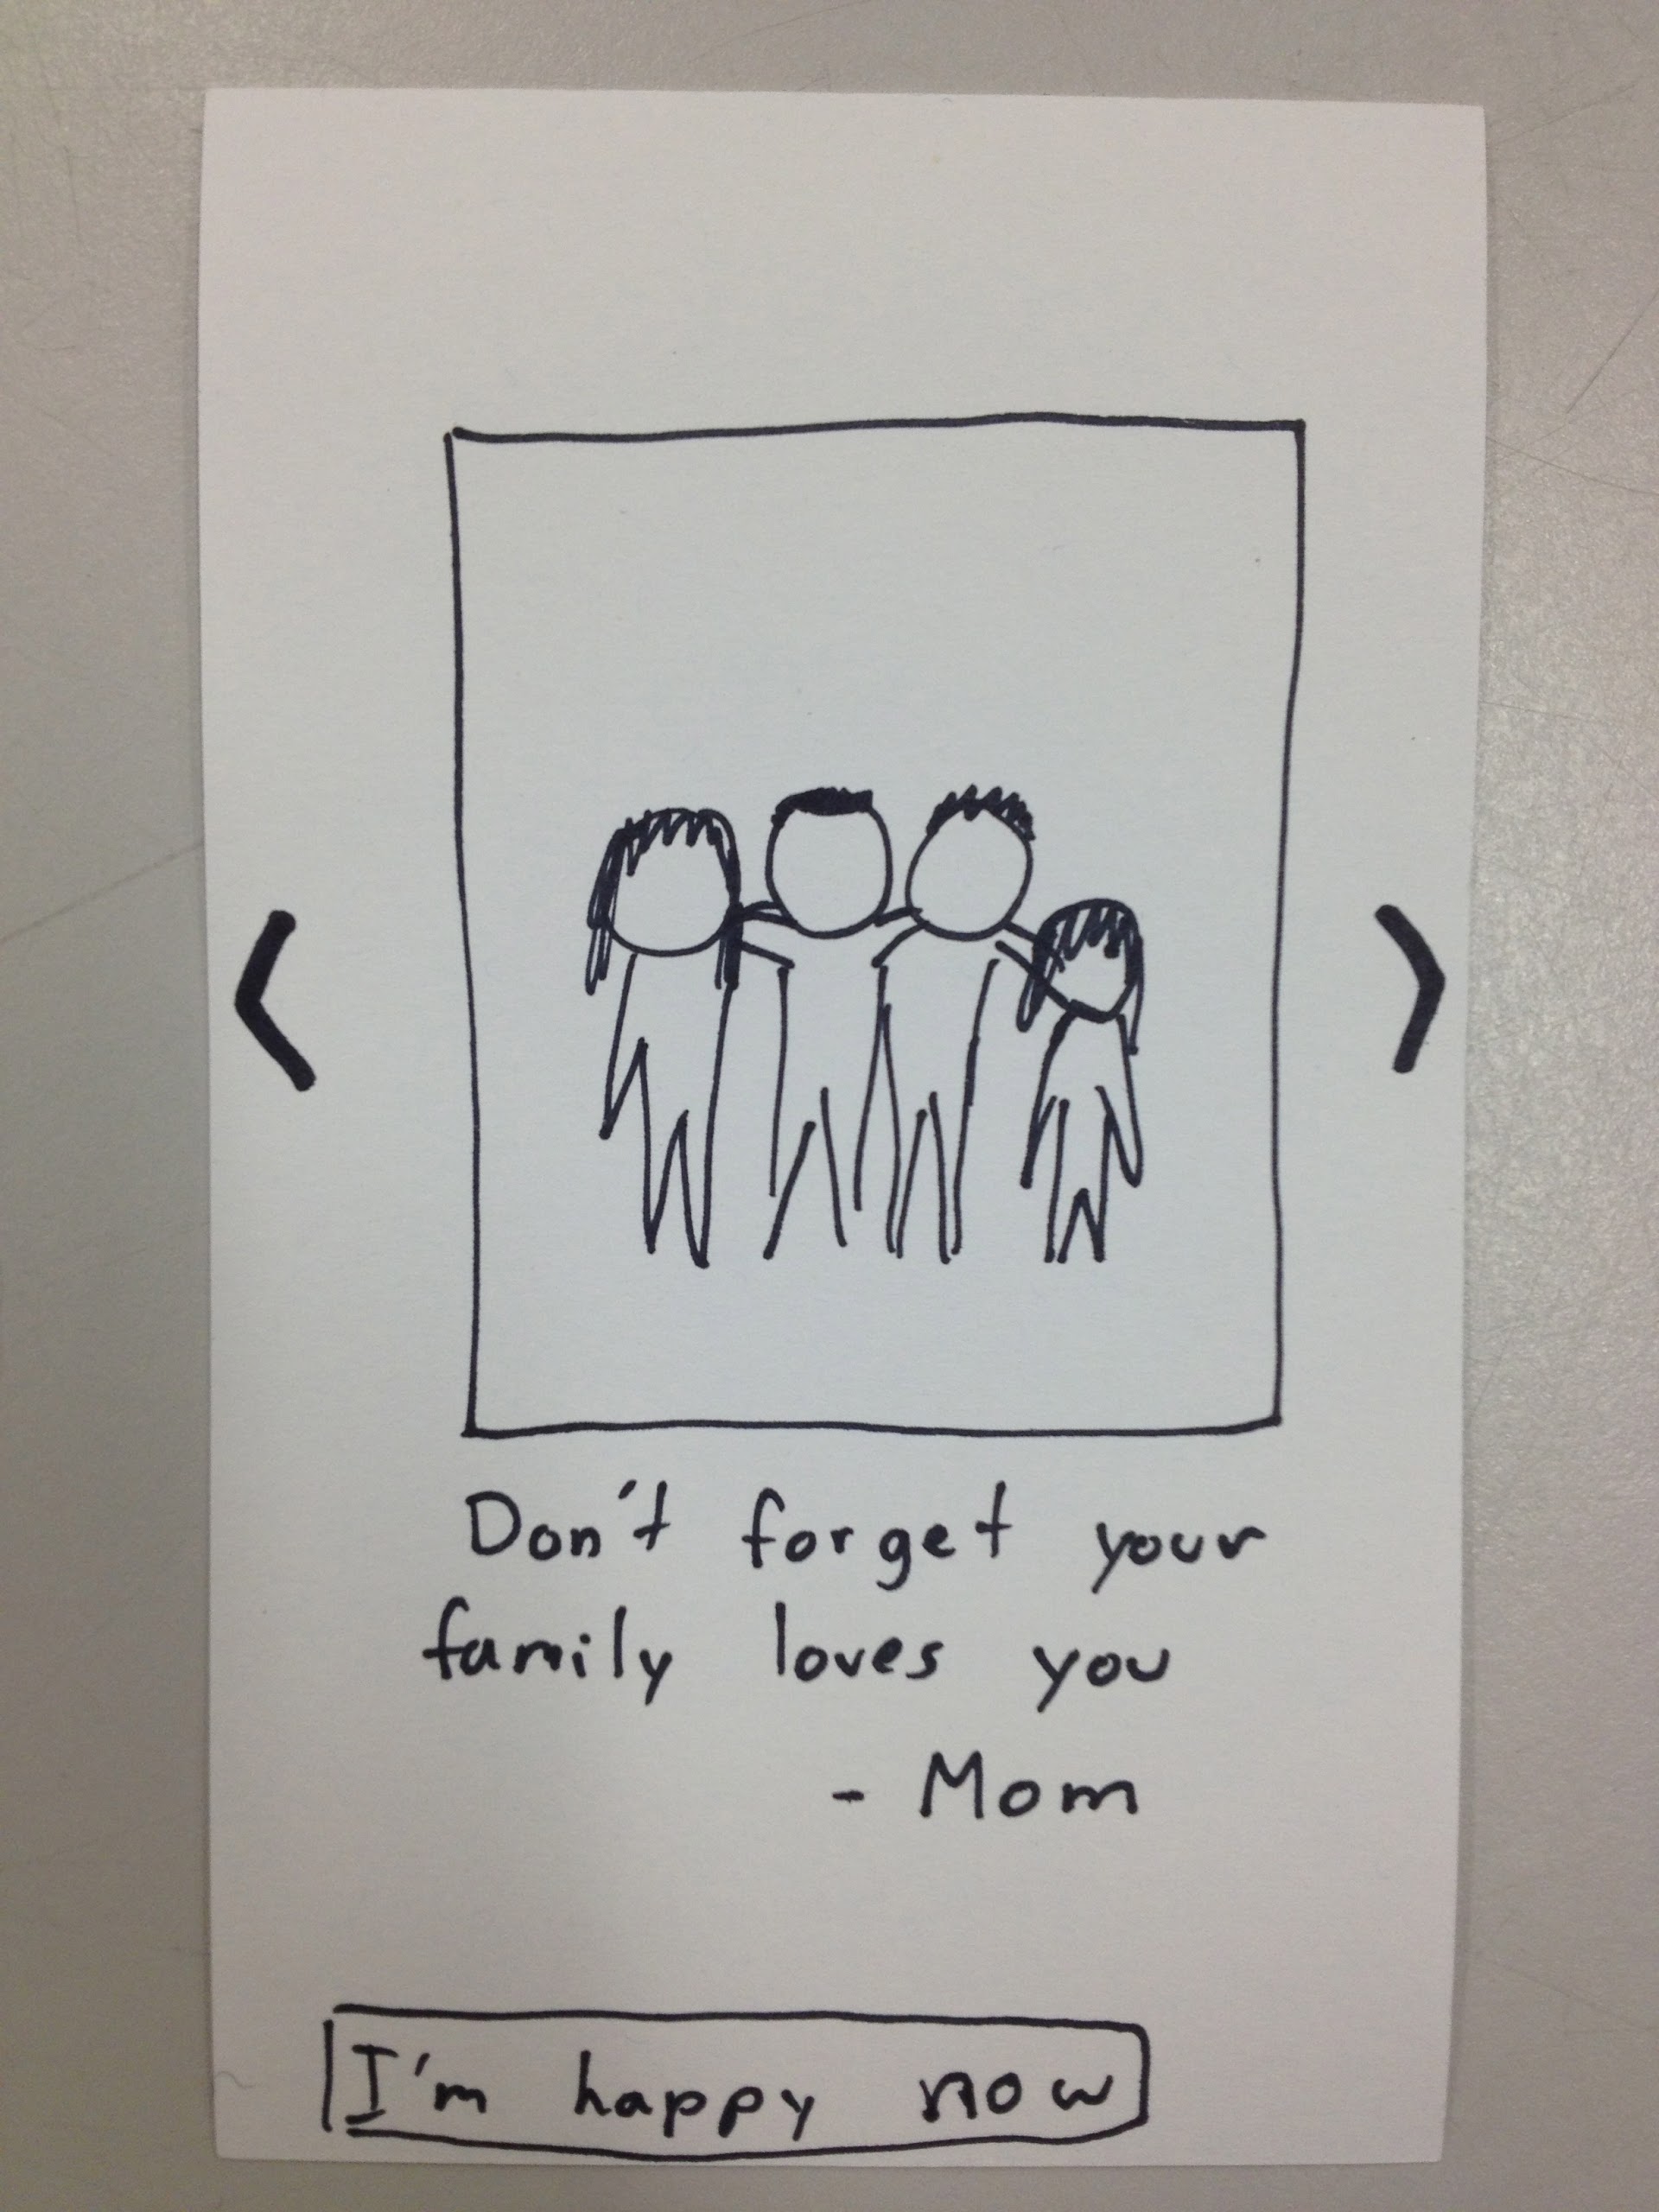 Don't forget your
family loves you
- Mom
I'm happy now